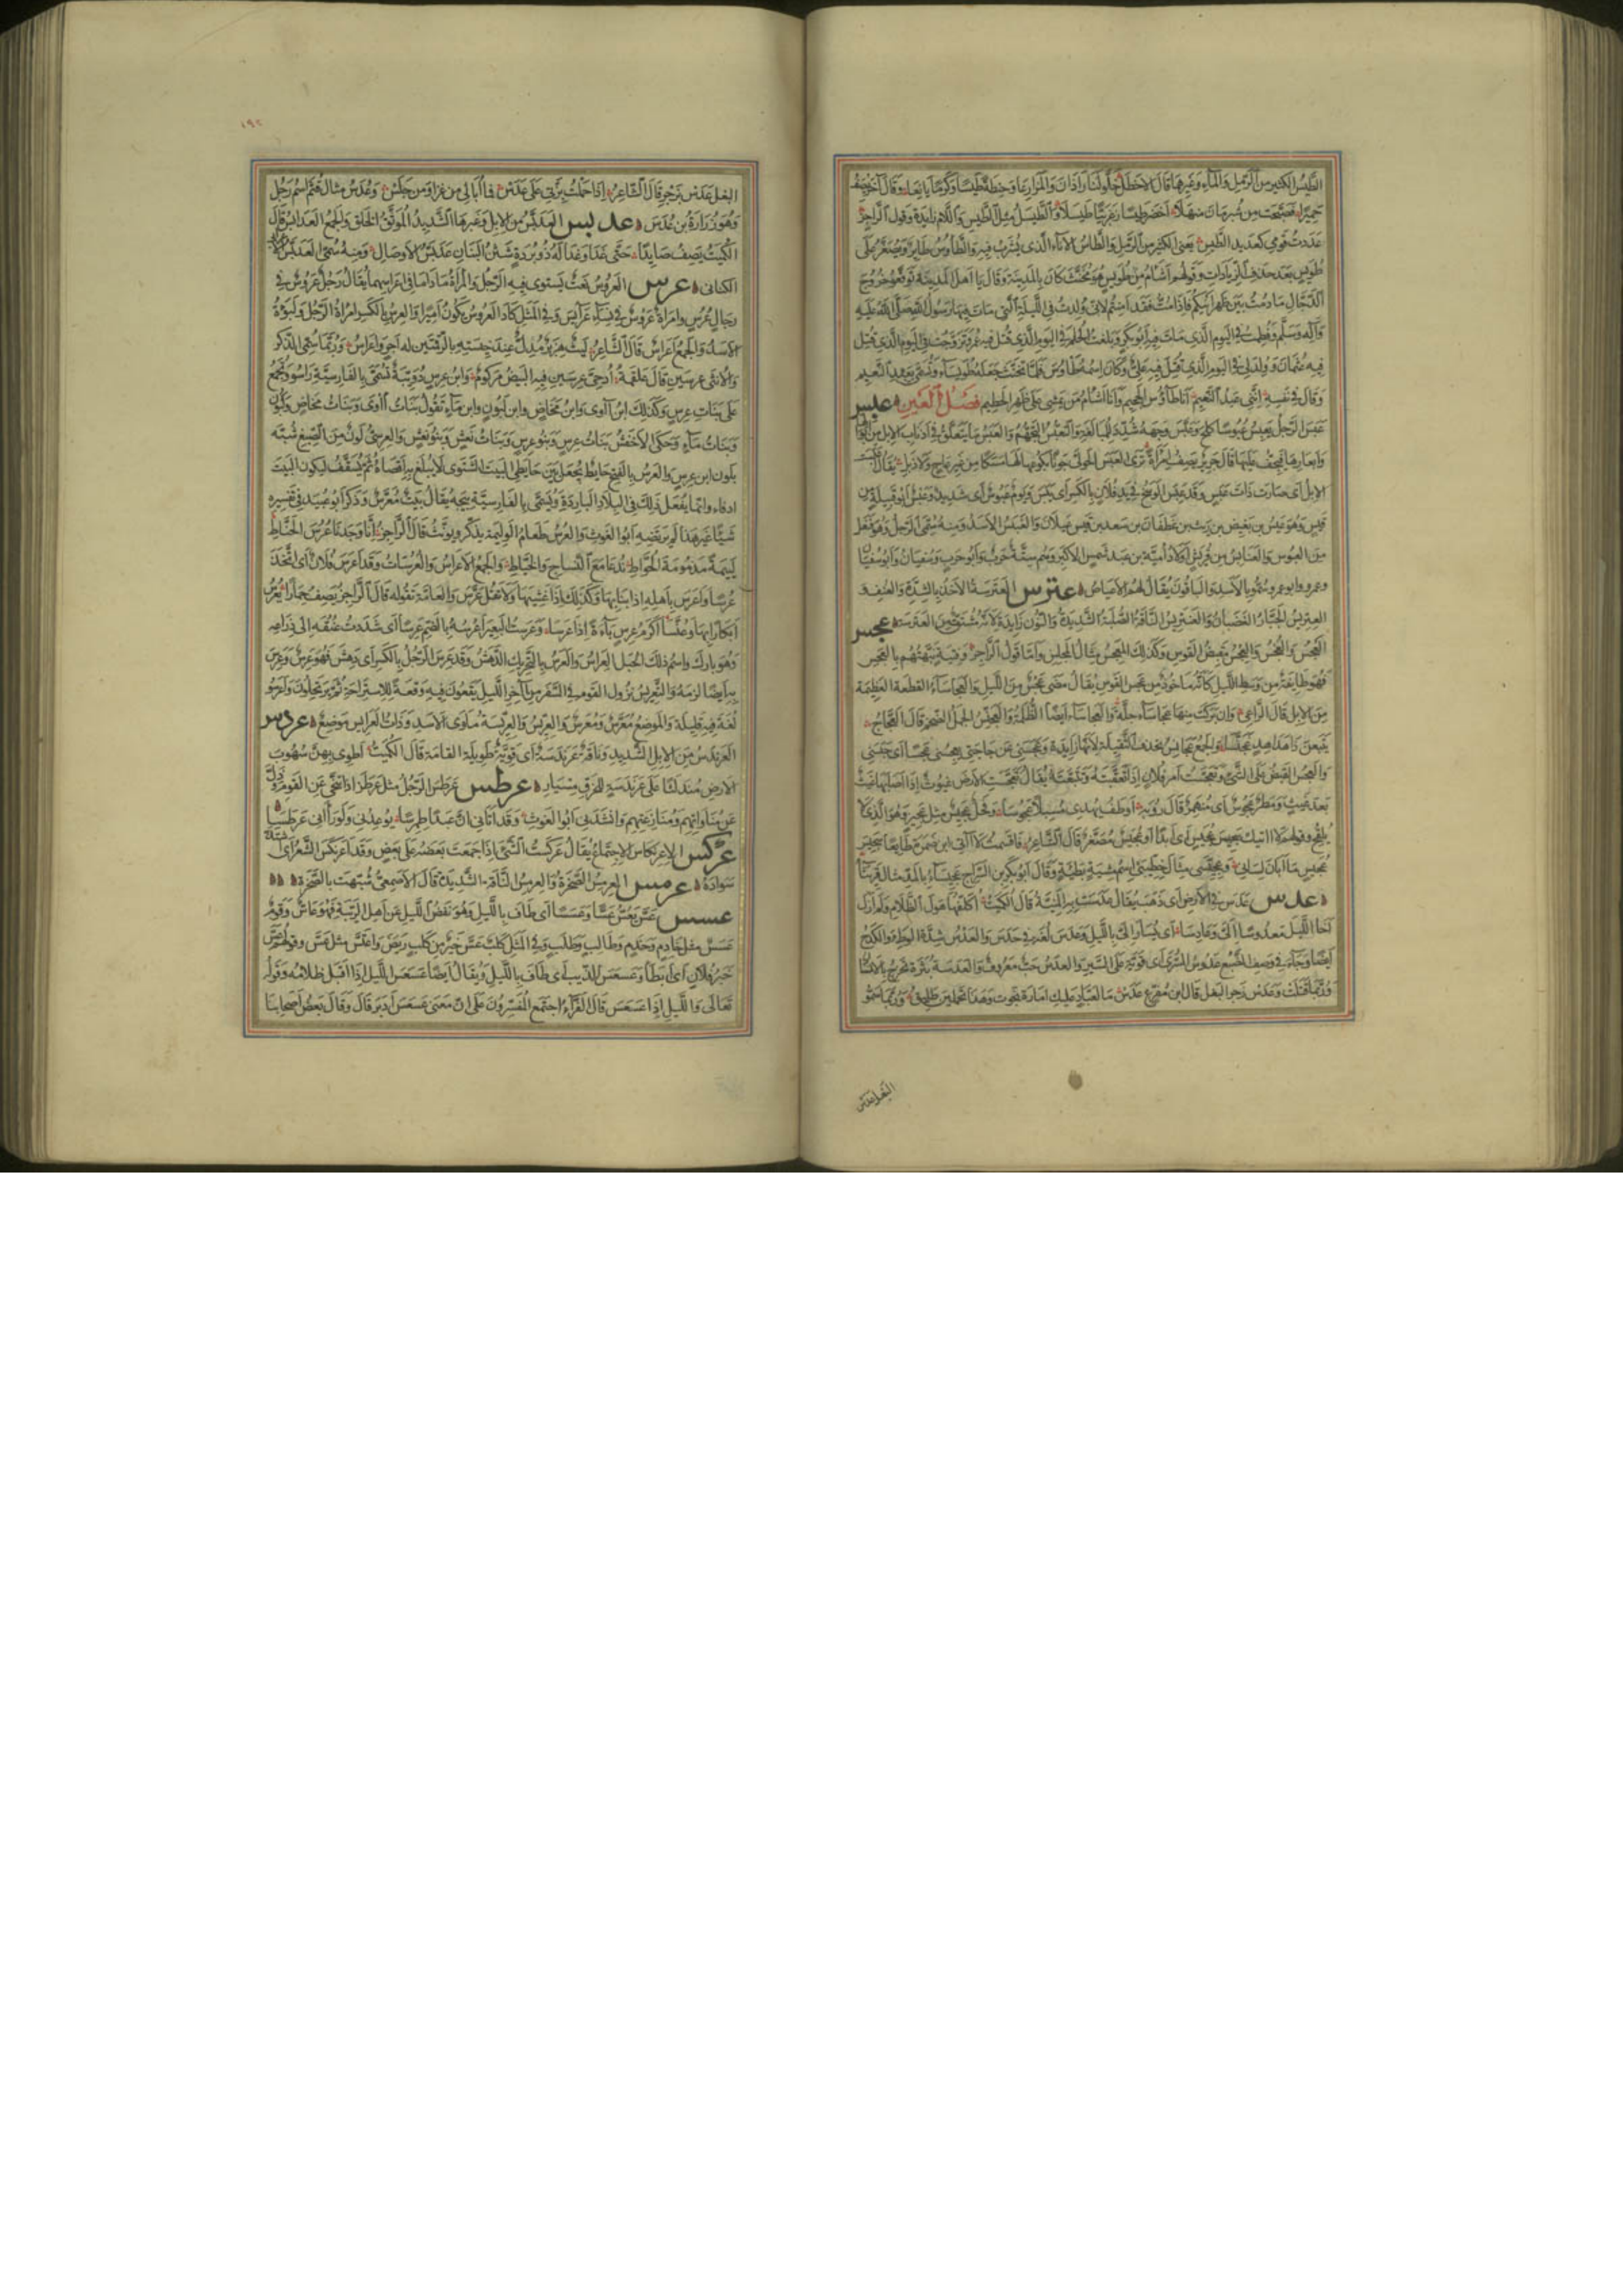 الطَّيْسُ الكثير من الرمل والماء وغيرهما قال الاخطل خلوا لنا راذان والمزارعا وحنطة طيسا وكرما يانعا وقال آخر يصف
حميرا فصبحت من شبرمان منهلا اخضر طيسا زغربيا طيسلا والطيسل مثل الطيس واللام زايدة وقول الراجز
عددت قومي كعديد الطيس يعني الكثير من الرمل والطاس الاناء الذي يشرب فيه والطاوس طاير ويصغر على
طويس بعد حذف الزيادات وقولهم اشأم من طويس هو مخنث كان بالمدينة وقال يا اهل المدينة توقعوا خروج
الدجال ما دمت بين ظهرانيكم فاذا مت فقد امنتم لاني ولدت في الليلة التي مات فيها رسول الله صلى الله عليه
وآله وسلم وفطمت في اليوم الذي مات فيه ابو بكر وبلغت الحلم في اليوم الذي قتل فيه عمر وتزوجت في اليوم الذي قتل
فيه عثمان وولد لي في اليوم الذي قتل فيه علي وكان اسمه طاوس فلما تخنث جعله طويسا وتسمى بعبد النعيم
وقال في نفسه انني عبد النعيم انا طاؤس الجحيم وانا اشأم من يمشي على ظهر الحطيم فصل العين عبس
عبس الرجل يعبس عبوسا كلح وعبس وجهه شدد للمبالغة والتعبس التجهم والعبس ما يتعلق في اذناب الابل من ابوالها
وابعارها فيجف عليها قال جرير يصف امرأة ترى العبس الحولي جونا بكوعها لها مسكا من غير عاج ولا ذبل يقال اعبست
الابل اي صارت ذات عبس وقد عبس الوسخ في يد فلان بالكسر اي يبس ويوم عبوس اي شديد وعبس ابو قبيلة من
قيس وهو عبس بن بغيض بن ريث بن غطفان بن سعد بن قيس عيلان والعنبس الاسد ومنه سمي الرجل وهو فنعل
من العبوس والعنابس من قريش اولاد امية بن عبد شمس الاكبر وهم ستة حرب وابو حرب وسفيان وابو سفيان
وعمرو وابو عمرو سموا بالاسد والباقون يقال لهم الاعياص عترس العترسة الاخذ بالشدة والعنف و
العتريس الجبار الغضبان والعنتريس الناقة الصلبة الشديدة والنون زايدة لانه مشتق من العترسة عجس
العجس والعجس والعجس مقبض القوس وكذلك المعجس مثال المجلس واما قول الراجز وفتية نبهتهم بالعجس
فهو طايفة من وسط الليل كانه ماخوذ من عجس القوس يقال مضى عجس من الليل والعجاساء القطعة العظيمة
من الابل قال الراعي وان بركت منها عجاساء جلة والعجاساء ايضا الظلمة والعجنس الجمل الضخم قال العجاج
يتبعن ذا هداهد عجنسا والجمع عجانس بحذف الثقيلة لانها زايدة وعجسني عن حاجتي يعجسني عجسا اي حبسني
والعجس القبض على الشيء وتعجست امر فلان اذا تعقبته وتتبعته يقال تعجست الارض غيوث اذا اصابها غيث
بعد غيث ومطر عجوس اي منهمر قال رؤبة اوطف يهدي مسبلا عجوسا وفحل عجيس مثل عجير وهو الذي لا
يلقح وقولهم لا اتيك سجيس عجيس اي ابدا وهو عجيس مصغر قال الشاعر فاقسمت لا آتي ابن ضمرة طايعا سجيس
عجيس ما ابان لساني وعجيسى مثال خطيبى اسم مشية بطيئة وقال ابو بكر بن السراج عجيساء بالمد مثال قريثاء
عدس عدس في الارض اي ذهب يقال عدست به المنية قال الكميت اكلفها هول الظلام ولم ازل
اخا الليل معدوسا الي وعادسا اي يسار الي بالليل وعدس لغة في حدس والعدس شدة الوطء والكدح
ايضا وجاء في وصف الضبع عدوس السرى اي قوية على السير والعدس حب معروف والعدسة بثرة تخرج بالانسان
وربما قتلت وعدس زجر البغل قال ابن مفرغ عدس ما لعباد عليك امارة نجوت وهذا تحملين طليق وربما سموا
البغل عدس
١٩٢
البغل عدس بزجره قال الشاعر اذا حملت بزتي على عدس فما ابالي من غزا ومن جلس وعدس مثال قثم اسم رجل
وهو زرارة بن عدس عدبس العدبس من الابل وغيرها الشديد الموثق الخلق والجمع العدابس قال
الكميت يصف صايدا حتى غدا وغدا له ذو بردة شثن البنان عدبس الاوصال ومنه سمي العدبس الاعرابي
الكناني عرس العروس نعت يستوي فيه الرجل والمرأة ما داما في اعراسهما يقال رجل عروس في
رجال عرس وامرأة عروس في نساء عرايس وفي المثل كاد العروس يكون اميرا والعرس بالكسر امراة الرجل ولبوة
الاسد والجمع اعراس قال الشاعر ليث هزبر مدل عند خيسته بالرقمتين له اجر واعراس وربما سمي الذكر
والانثى عرسين قال علقمة ادحي عرسين فيه البيض مركوم وابن عرس دويبة تسمى بالفارسية راسو ويجمع
على بنات عرس وكذلك ابن آوى وابن مخاض وابن لبون وابن ماء تقول بنات آوى وبنات مخاض وبنات لبون
وبنات ماء وحكى الاخفش بنات عرس وبنو عرس وبنات نعش وبنو نعش والعرسي لون من الصبغ شبه
بلون ابن عرس والعرس بالفتح حايط يجعل بين حايطي البيت الشتوي لا يبلغ به اقصاه ثم يسقف ليكون البيت
ادفاء وانما يفعل ذلك في البلاد الباردة ويسمى بالفارسية بيجه يقال بيت معرس وذكر ابو عبيد في تفسيره
شيئا غير هذا لم يرتضه ابو الغوث والعرس طعام الوليمة يذكر ويؤنث قال الراجز انا وجدنا عرس الحناط
لئيمة مذمومة الحواط ندعى مع النساج والخياط والجمع الاعراس والعرسات وقد اعرس فلان اي اتخذ
عرسا واعرس باهله اذا بنا بها وكذلك اذا غشيها ولا تقل عرس والعامة تقوله قال الراجز يصف حمارا يعرس
ابكارا بها وعنسا اكرم عرس باءة اذا عرسا وعرست البعير اعرسه بالضم عرسا اي شددت عنقه الى ذراعه
وهو بارك واسم ذلك الحبل العراس والعرس بالتحريك الدهش وقد عرس الرجل بالكسر اي دهش فهو عرس وعرس
به ايضا لزمه والتعريس نزول القوم في السفر من آخر الليل يقعون فيه وقعة للاستراحة ثم يرتحلون واعرسوا
لغة فيه قليلة والموضع معرس ومعرس والعريس والعريسة ماوى الاسد وذات العرايس موضع عردس
العرندس من الابل الشديد وناقة عرندسة اي قوية طويلة القامة قال الكميت اطوي بهن سهوب
الارض مندلثا على عرندسة للخرق مسيار عرطس عرطس الرجل مثل عرطز اذا تنحى عن القوم وذل
عن مناواتهم ومنازعتهم وانشدني ابو الغوث وقد اتاني ان عبدا طمرسا يوعدني ولو رآني عرطسا
عركس الاعرنكاس الاجتماع يقال عركست الشيء اذا جمعت بعضه على بعض وقد اعرنكس الشعر اي اشتد
سواده عرمس العرمس الصخرة والعرمس الناقة الشديدة قال الاصمعي شبهت بالصخرة
عسس عس يعس عسا وعسسا اي طاف بالليل وهو نفض الليل عن اهل الريبة فهو عاس وقوم
عسس مثل خادم وخدم وطالب وطلب وفي المثل كلب عس خير من كلب ربض واعتس مثل عس وقولهم عس
خبر فلان اي ابطأ وعسعس الذيب اي طاف بالليل ويقال ايضا عسعس الليل اذا اقبل ظلامه وقوله
تعالى والليل اذا عسعس قال الفراء اجتمع المفسرون على ان معنى عسعس ادبر قال وقال بعض اصحابنا